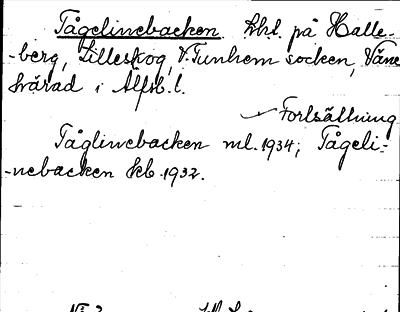 Tågelinebacken bkt. på Halle-
-berg, Lilleskog, V. Tunhem socken, Väne
härad i Älfsb. l.
Fortsättning
Tåglinebacken ml. 1934; Tågeli-
-nebacken kb 1932.